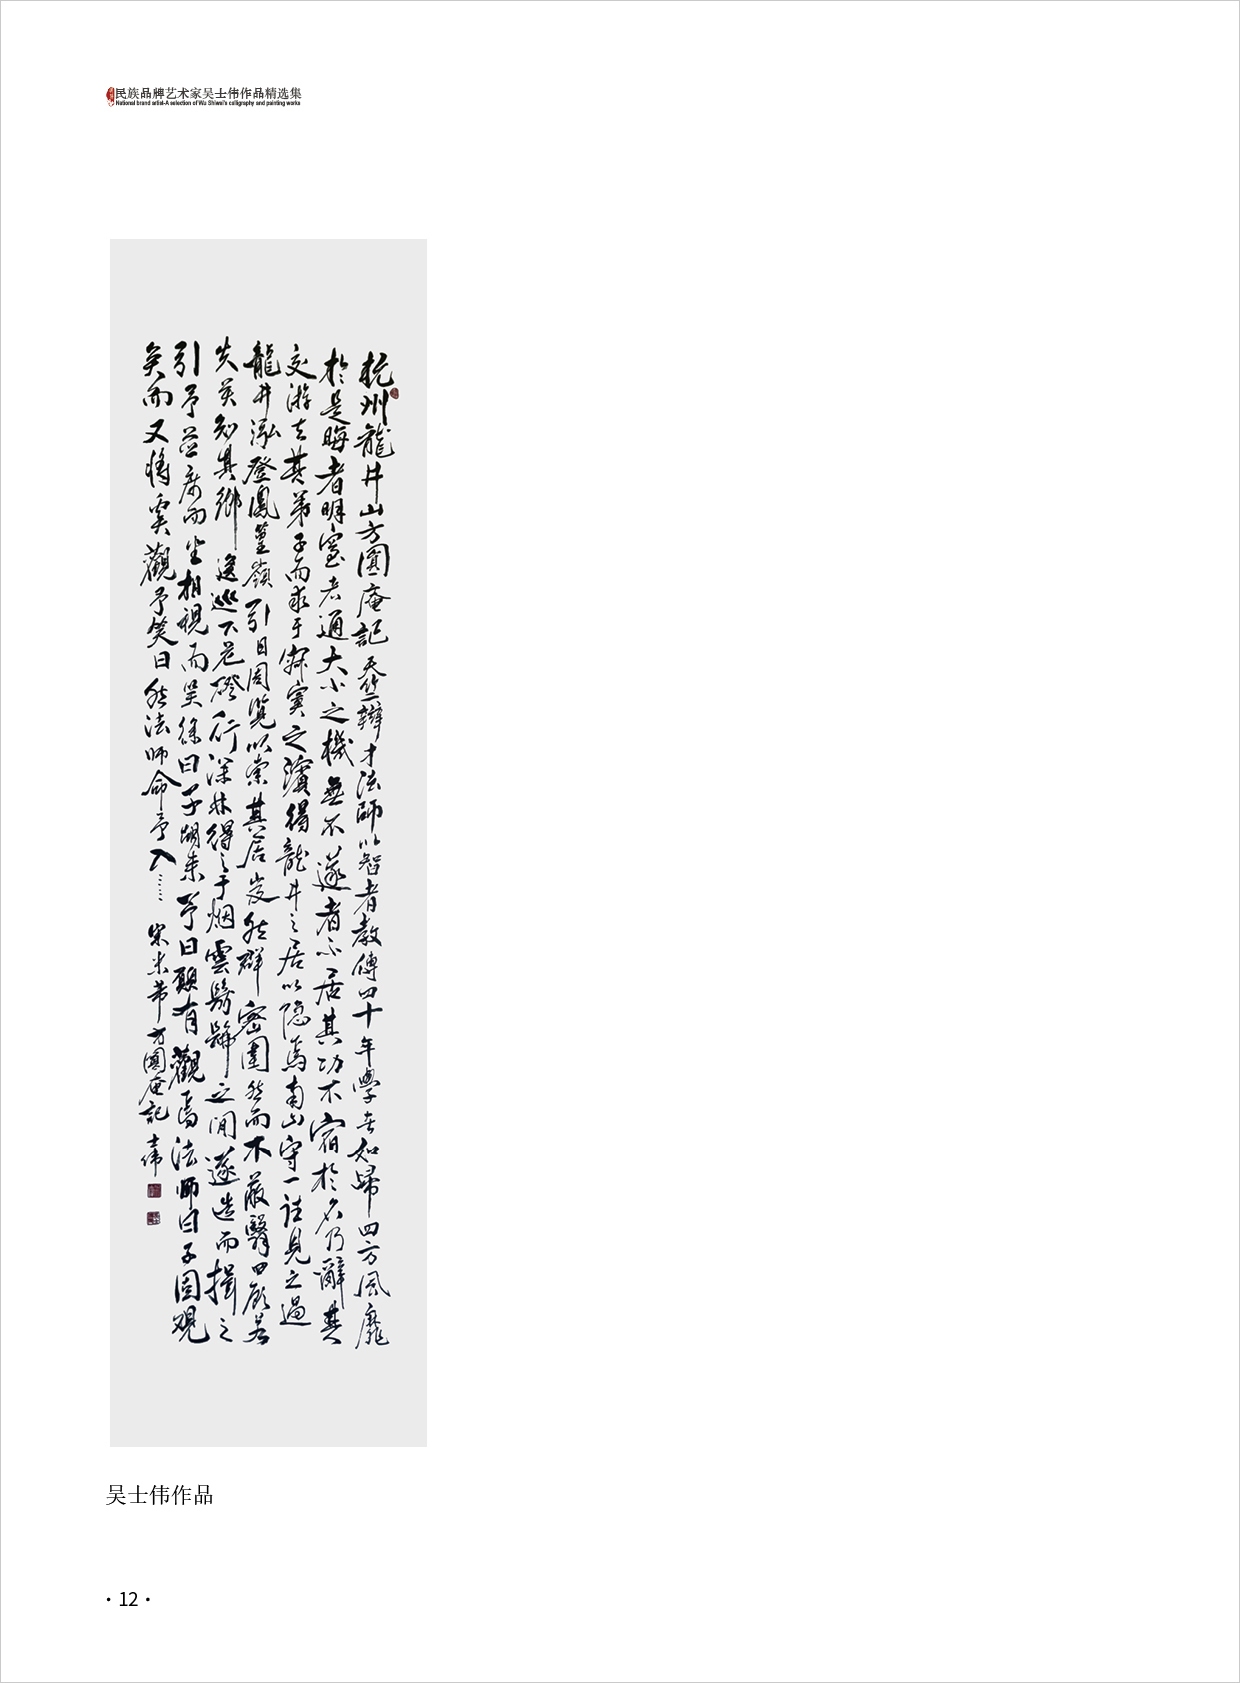 民族品牌艺术家吴士伟作品精选集
National brand artist-A selection of Wu Shiwei's calligraphy and painting works
杭州龍井山方圓庵記天竺辯才法師以智者教傳四十年學者如歸四方風靡
於是晦者明窒者通大小之機無不遂者不居其功不宿於名乃辭其
交游去其弟子而求于寂寞之濱得龍井之居以隐焉南山守一往見之過
龍井泓登鳳篁嶺引目周覽以索其居岌然群密圍然而不蔽翳四顧若
失莫知其鄉逡巡下危磴行深林得之于烟雲髣髴之間遂造而揖之
引予並席而坐相視而笑徐曰子胡來予曰願有觀焉法師曰子固观
矣而又將奚觀予笑曰然法師命予入……宋米芾方圓庵記士伟
吴士伟作品
·12·